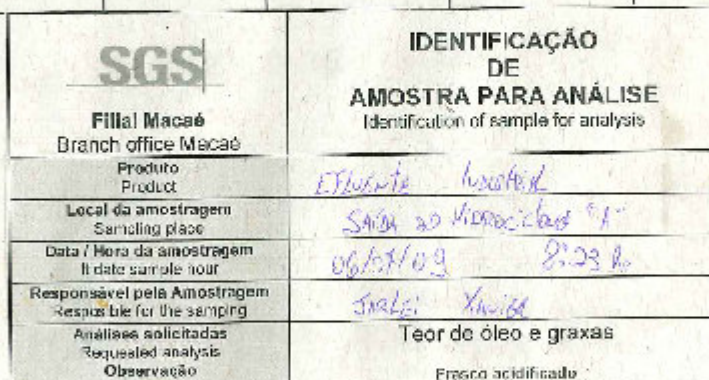 SGS
Filial Macaé
Branch office Macaé
IDENTIFICAÇÃO
DE
AMOSTRA PARA ANÁLISE
Identification of sample for analysis
Produto
Product
Efluente Industrial
Local da amostragem
Sampling place
Saída do Hidrociclone "A"
Data / Hora da amostragem
It date sample hour
06/07/09 8:23 h
Responsável pela Amostragem
Responsible for the sampling
Xavier
Análises solicitadas
Requested analysis
Teor de óleo e graxas
Observação
Frasco acidificado